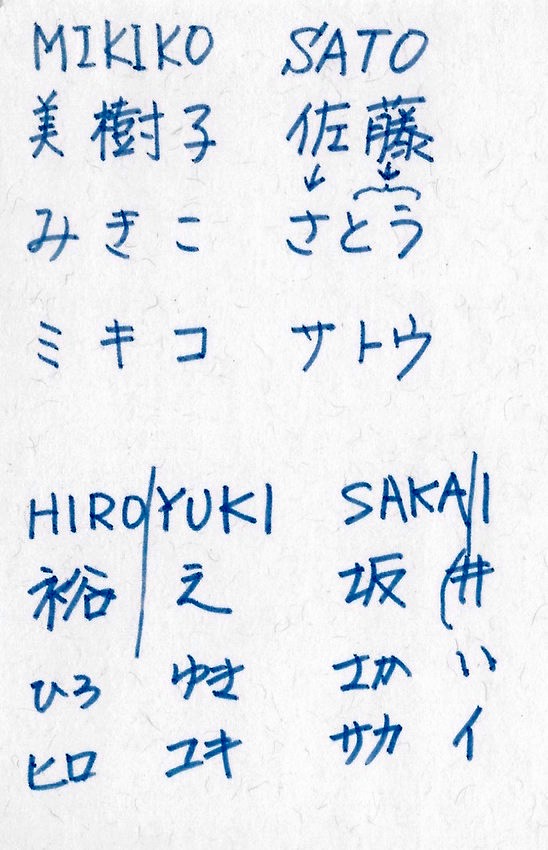 MIKIKO SATO
美樹子 佐藤
みきこ さとう
ミキコ サトウ
HIRO/YUKI SAKA/I
裕之 坂井
ひろ ゆき さか い
ヒロ ユキ サカ イ